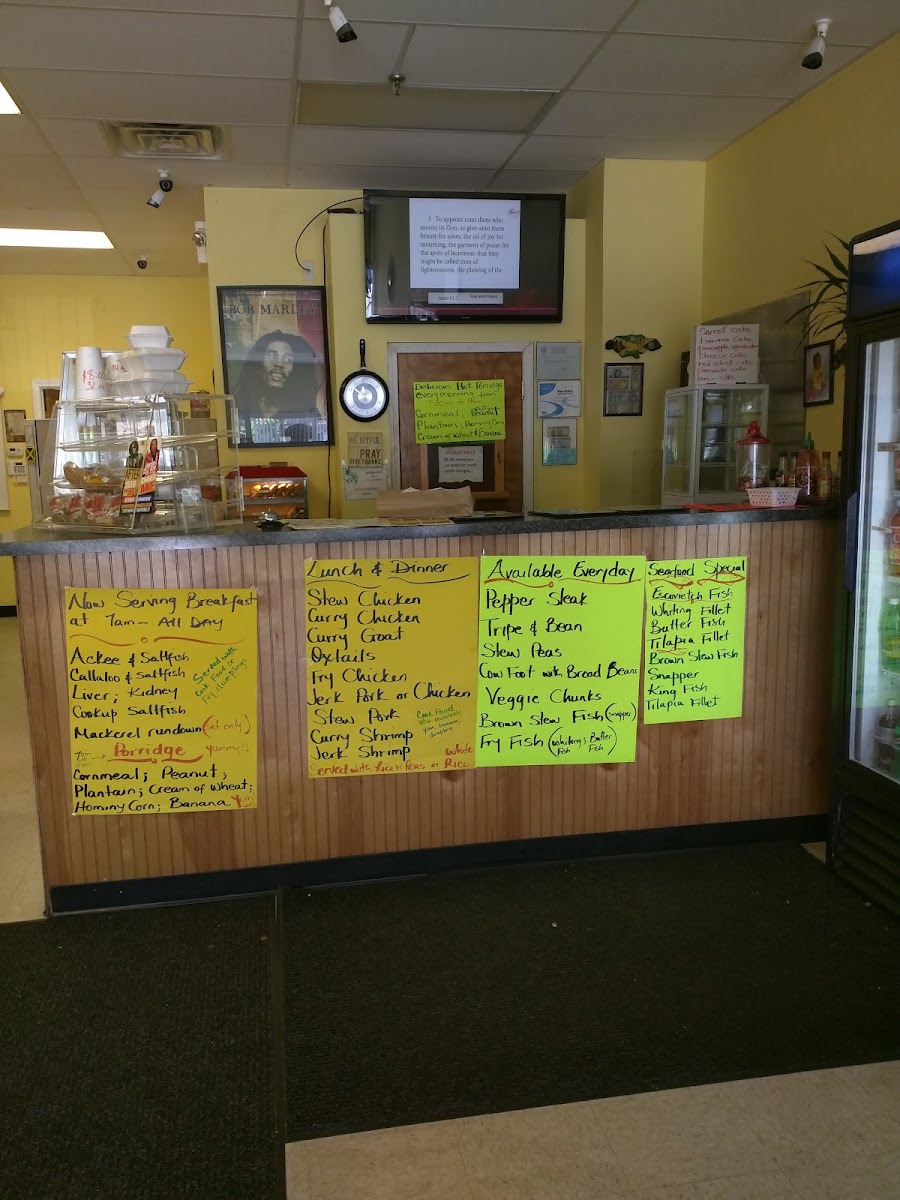 3 To appoint unto them who
mourn in Zion, to give unto them
beauty for ashes, the oil of joy for
mourning, the garment of praise for
the spirit of heaviness; that they
might be called trees of
righteousness, the planting of the
BOB MARLEY
Carrot cake
banana cake
cheese cake
red velvet cake
chocolate cake
lemon cake
Delicious Hot Porridge
Every morning from
Cornmeal, Peanut
Plantain, Hominy Corn
Cream of Wheat & Banana
BE JOYFUL
PRAY
PLEASE NOTE
Now Serving Breakfast
at 7am - All DAY
Ackee & Saltfish
Callaloo & Saltfish
Liver; Kidney
Cookup Saltfish
Mackerel rundown (sat only)
Served with
Cook Food or
Fry dumplings
Porridge yummy!!
Cornmeal; Peanut;
Plantain; Cream of Wheat;
Hominy Corn; Banana
Lunch & Dinner
Stew Chicken
Curry Chicken
Curry Goat
Oxtails
Fry Chicken
Jerk Pork or Chicken
Stew Pork
Curry Shrimp
Jerk Shrimp
Cook Food
also available,
yam, banana,
dumpling
Served with Rice & Peas or White Rice
Available Everyday
Pepper Steak
Tripe & Bean
Stew Peas
Cow Foot with Broad Beans
Veggie Chunks
Brown Stew Fish (snapper)
Fry Fish (whiting; Butter
Fish Fish)
Seafood Special
Escovietch Fish
Whiting Fillet
Butter Fish
Tilapia Fillet
Brown Stew Fish
Snapper
King Fish
Tilapia Fillet